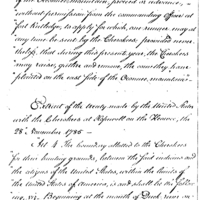 of the Oconee mountain, proceed &
without permission from the commanding officer at
fort Rutledge, to apply for which, one runner may at
any time be sent by the Cherokees, provided never-
theless, that during this present year, the Cherokees
may raise, gather and remove, the corn they have
planted on the east side of the Oconee, mountain
Extract of the treaty made by the United States
with the Cherokees at Hopewell on the Keowee, the
28, November 1785
Art 4 The boundary allotted to the Cherokees
for their hunting grounds, between the said indians and
the citizens of the United States, within the limits of
the United States of America, is and shall be the follow-
ing, viz. Beginning at the mouth of Duck river